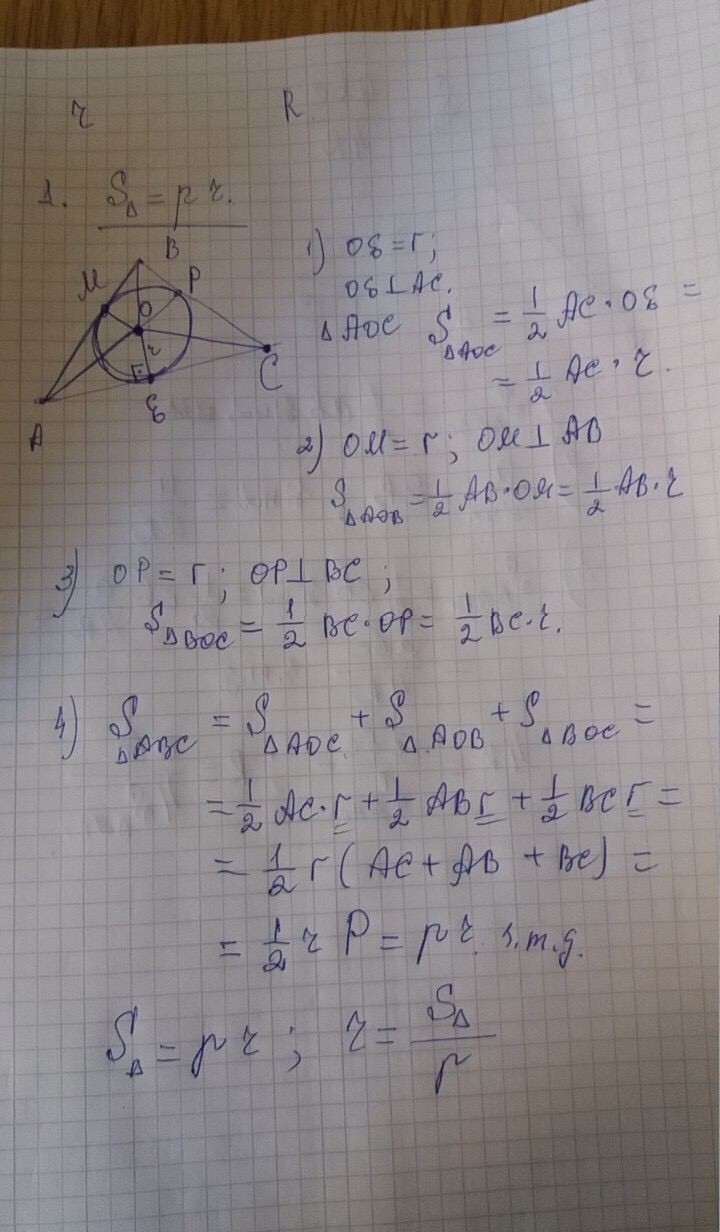 r R
1. S△ = p r.
B
M P
O
r
C
E
A
1) OE = r;
OE ⊥ AC.
△AOC S△AOC = 1/2 AC · OE =
= 1/2 AC · r.
2) OM = r; OM ⊥ AB
S△AOB = 1/2 AB · OM = 1/2 AB · r
3) OP = r; OP ⊥ BC;
S△BOC = 1/2 BC · OP = 1/2 BC · r.
4) S△ABC = S△AOC + S△AOB + S△BOC =
= 1/2 AC · r + 1/2 AB r + 1/2 BC r =
= 1/2 r (AC + AB + BC) =
= 1/2 r P = p r. ч.т.д.
S△ = p r; r = S△/p